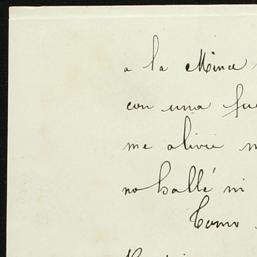 a la Mina
con una
me alivié
no hallé ni
Como